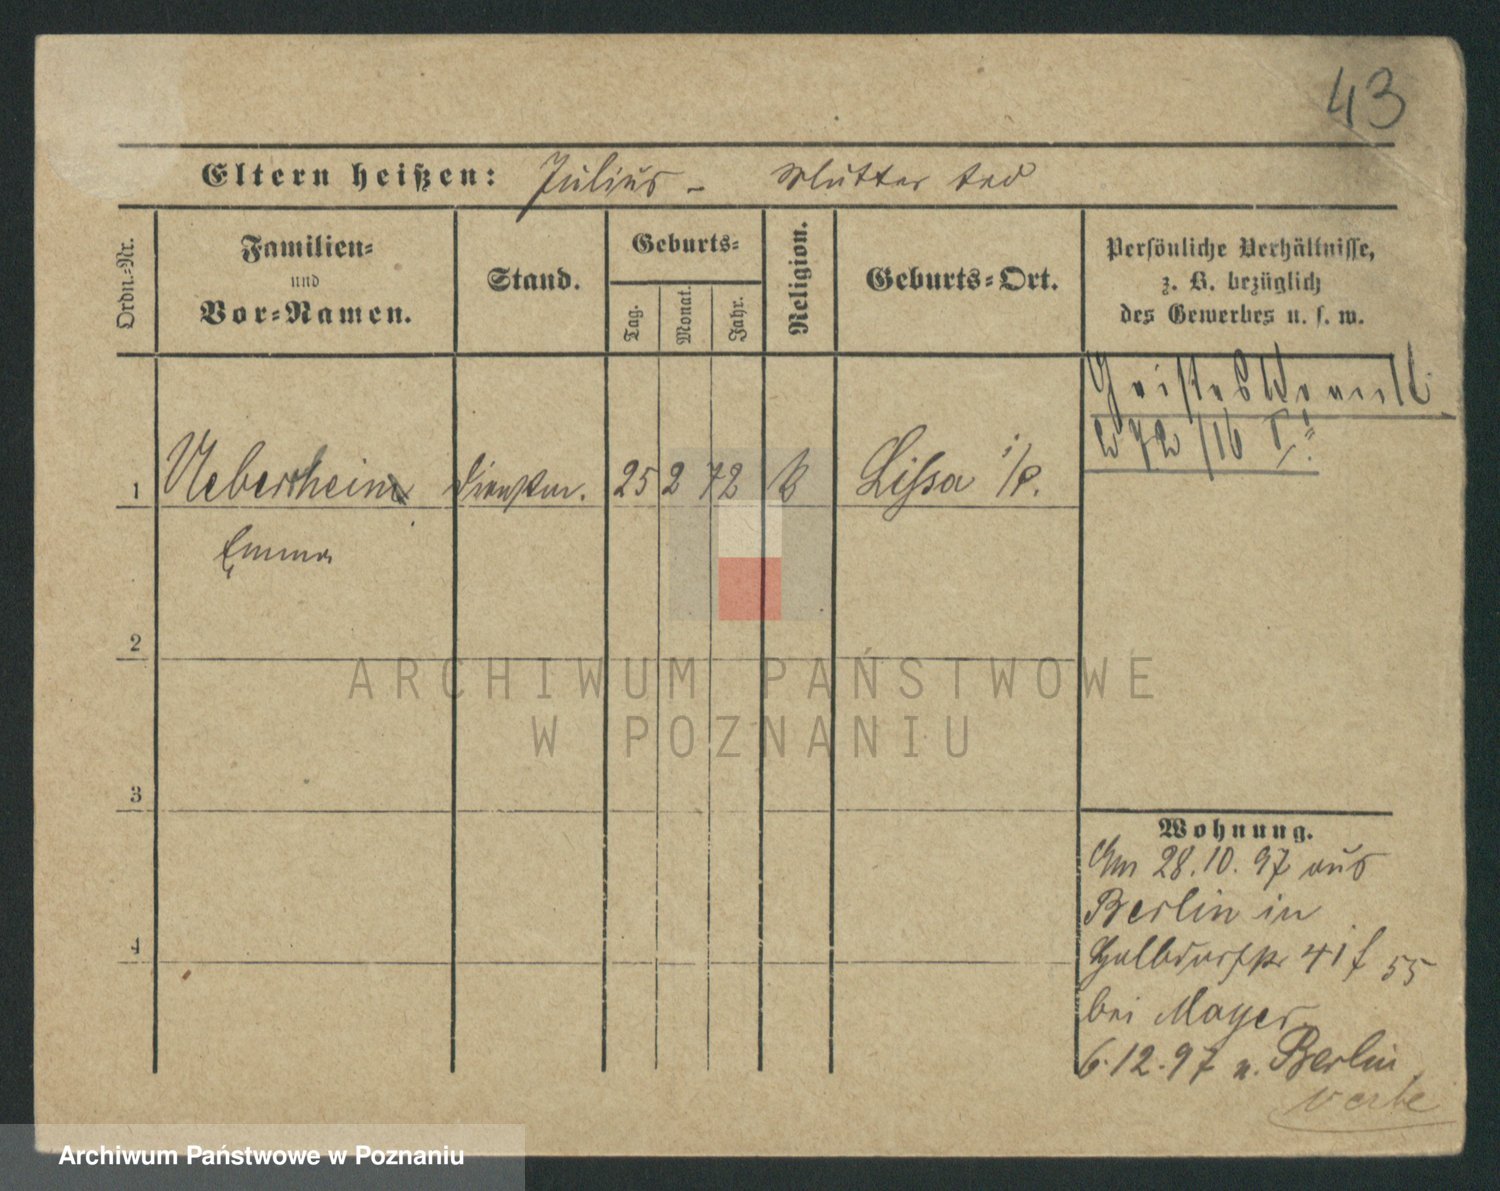 43
Eltern heißen: Julius - Mutter tod
Ordn.-Nr.
Familien-
und
Vor-Namen.
Stand.
Geburts-
Tag.
Monat.
Jahr.
Religion.
Geburts-Ort.
Persönliche Verhältnisse,
z. B. bezüglich
des Gewerbes u. s. w.
1 Ueberrhein 25 2 72 Lissa i/P.
Emma
2
3
4
Wohnung.
Am 28.10.97 aus
Berlin in
55
bei Mayer
6.12.97 n. Berlin
ARCHIWUM PAŃSTWOWE
W POZNANIU
Archiwum Państwowe w Poznaniu